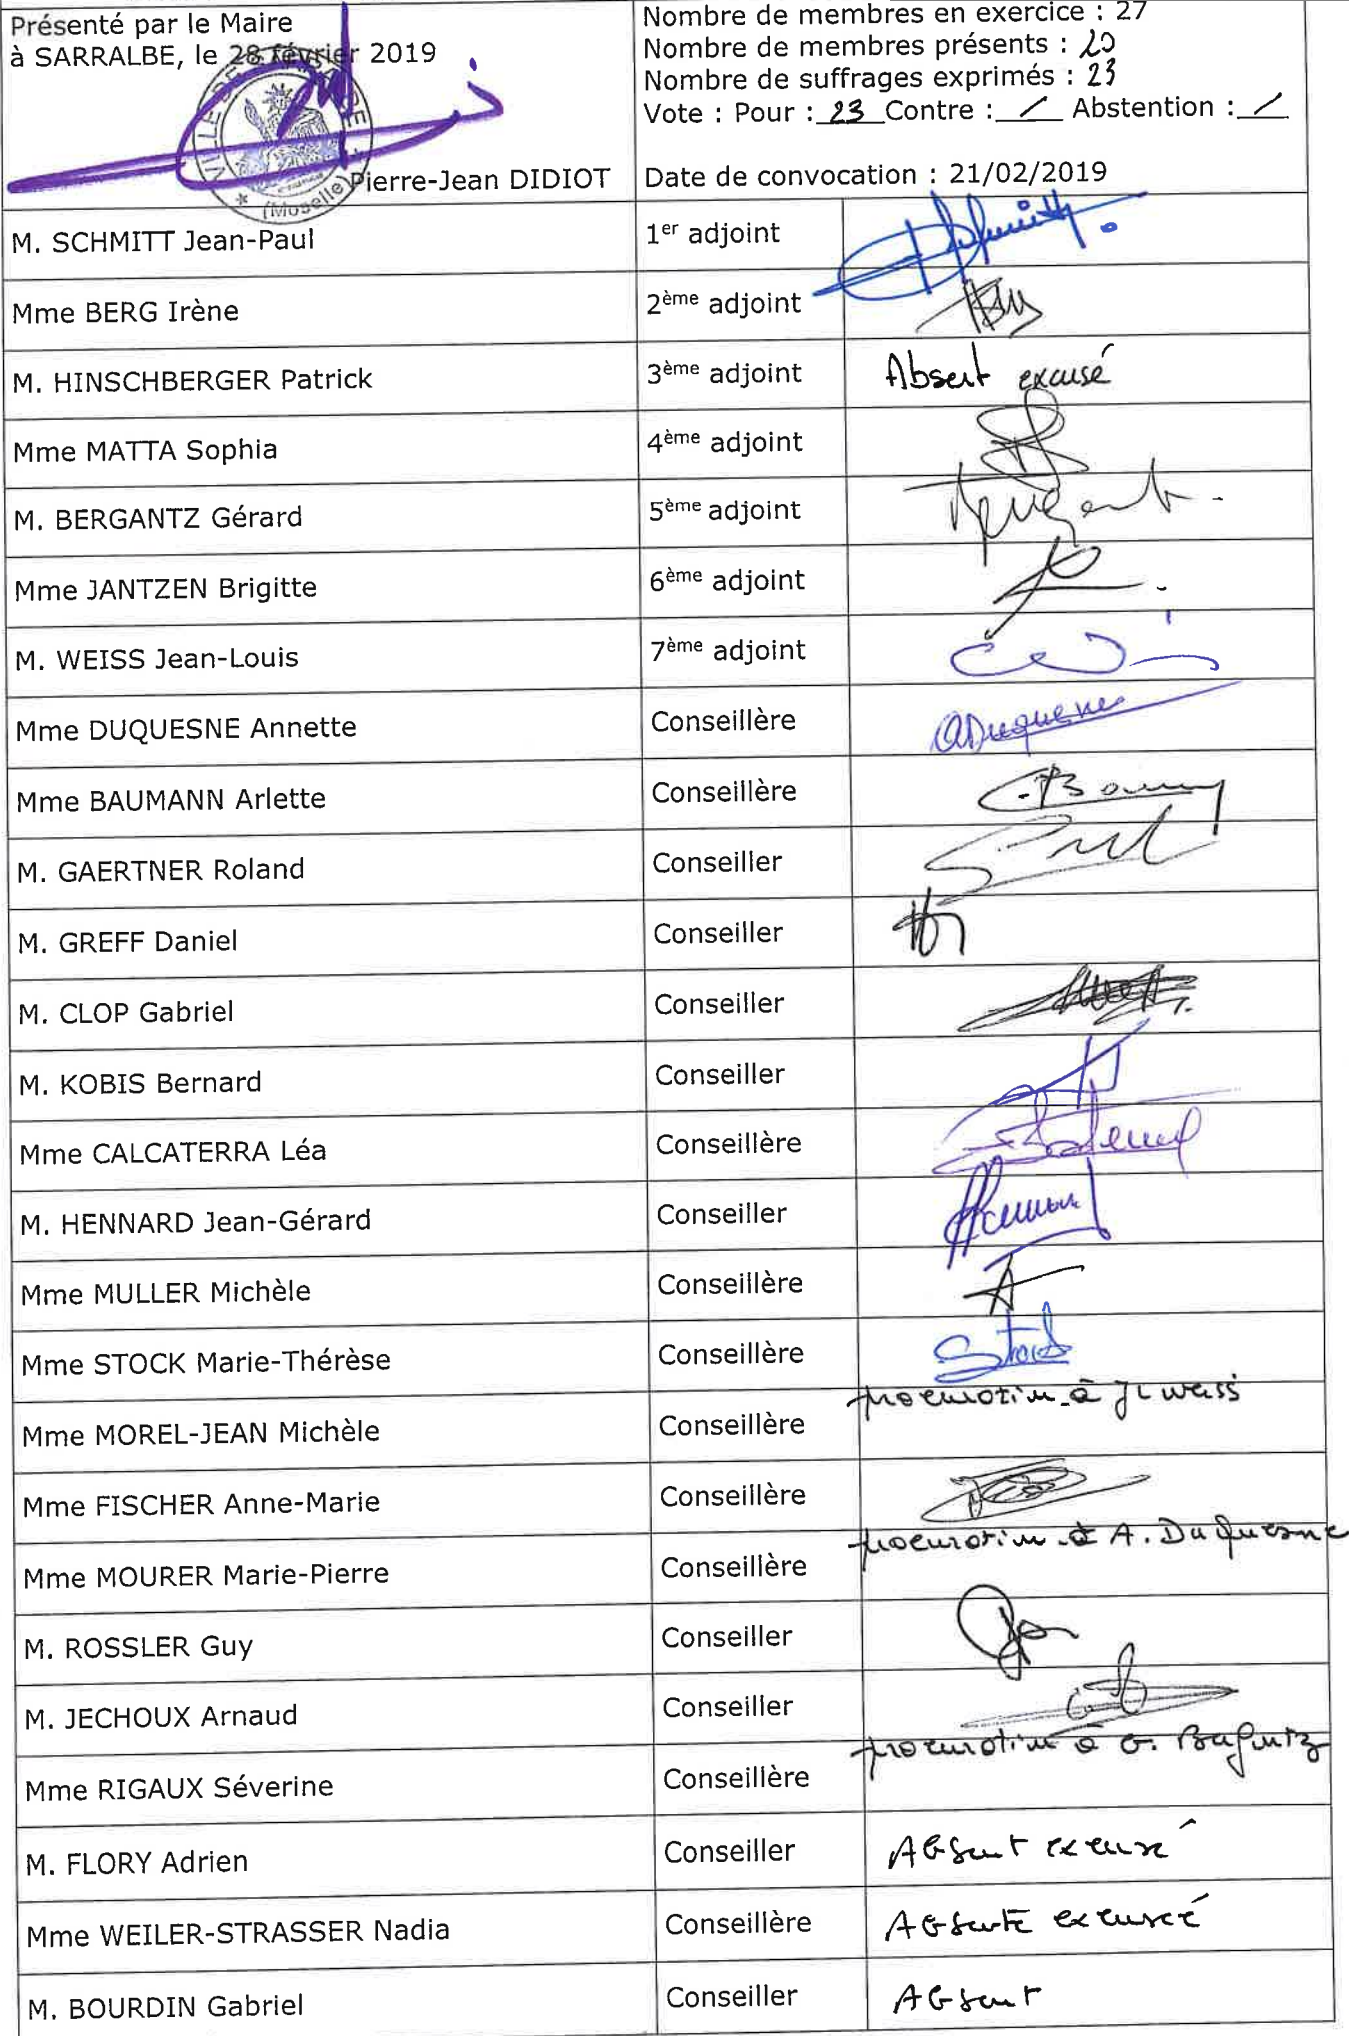 Présenté par le Maire
à SARRALBE, le 28 février 2019
Pierre-Jean DIDIOT
Nombre de membres en exercice : 27
Nombre de membres présents : 20
Nombre de suffrages exprimés : 23
Vote : Pour : 23 Contre : / Abstention : /
Date de convocation : 21/02/2019
(Moselle)
M. SCHMITT Jean-Paul 1er adjoint
Mme BERG Irène 2ème adjoint
M. HINSCHBERGER Patrick 3ème adjoint Absent excusé
Mme MATTA Sophia 4ème adjoint
M. BERGANTZ Gérard 5ème adjoint
Mme JANTZEN Brigitte 6ème adjoint
M. WEISS Jean-Louis 7ème adjoint
Mme DUQUESNE Annette Conseillère ADuquesne
Mme BAUMANN Arlette Conseillère
M. GAERTNER Roland Conseiller
M. GREFF Daniel Conseiller
M. CLOP Gabriel Conseiller
M. KOBIS Bernard Conseiller
Mme CALCATERRA Léa Conseillère
M. HENNARD Jean-Gérard Conseiller
Mme MULLER Michèle Conseillère
Mme STOCK Marie-Thérèse Conseillère Stock
Mme MOREL-JEAN Michèle Conseillère procuration à JL Weiss
Mme FISCHER Anne-Marie Conseillère
Mme MOURER Marie-Pierre Conseillère procuration à A. Duquesne
M. ROSSLER Guy Conseiller
M. JECHOUX Arnaud Conseiller
Mme RIGAUX Séverine Conseillère procuration à G. Bergantz
M. FLORY Adrien Conseiller Absent excusé
Mme WEILER-STRASSER Nadia Conseillère Absente excusée
M. BOURDIN Gabriel Conseiller Absent